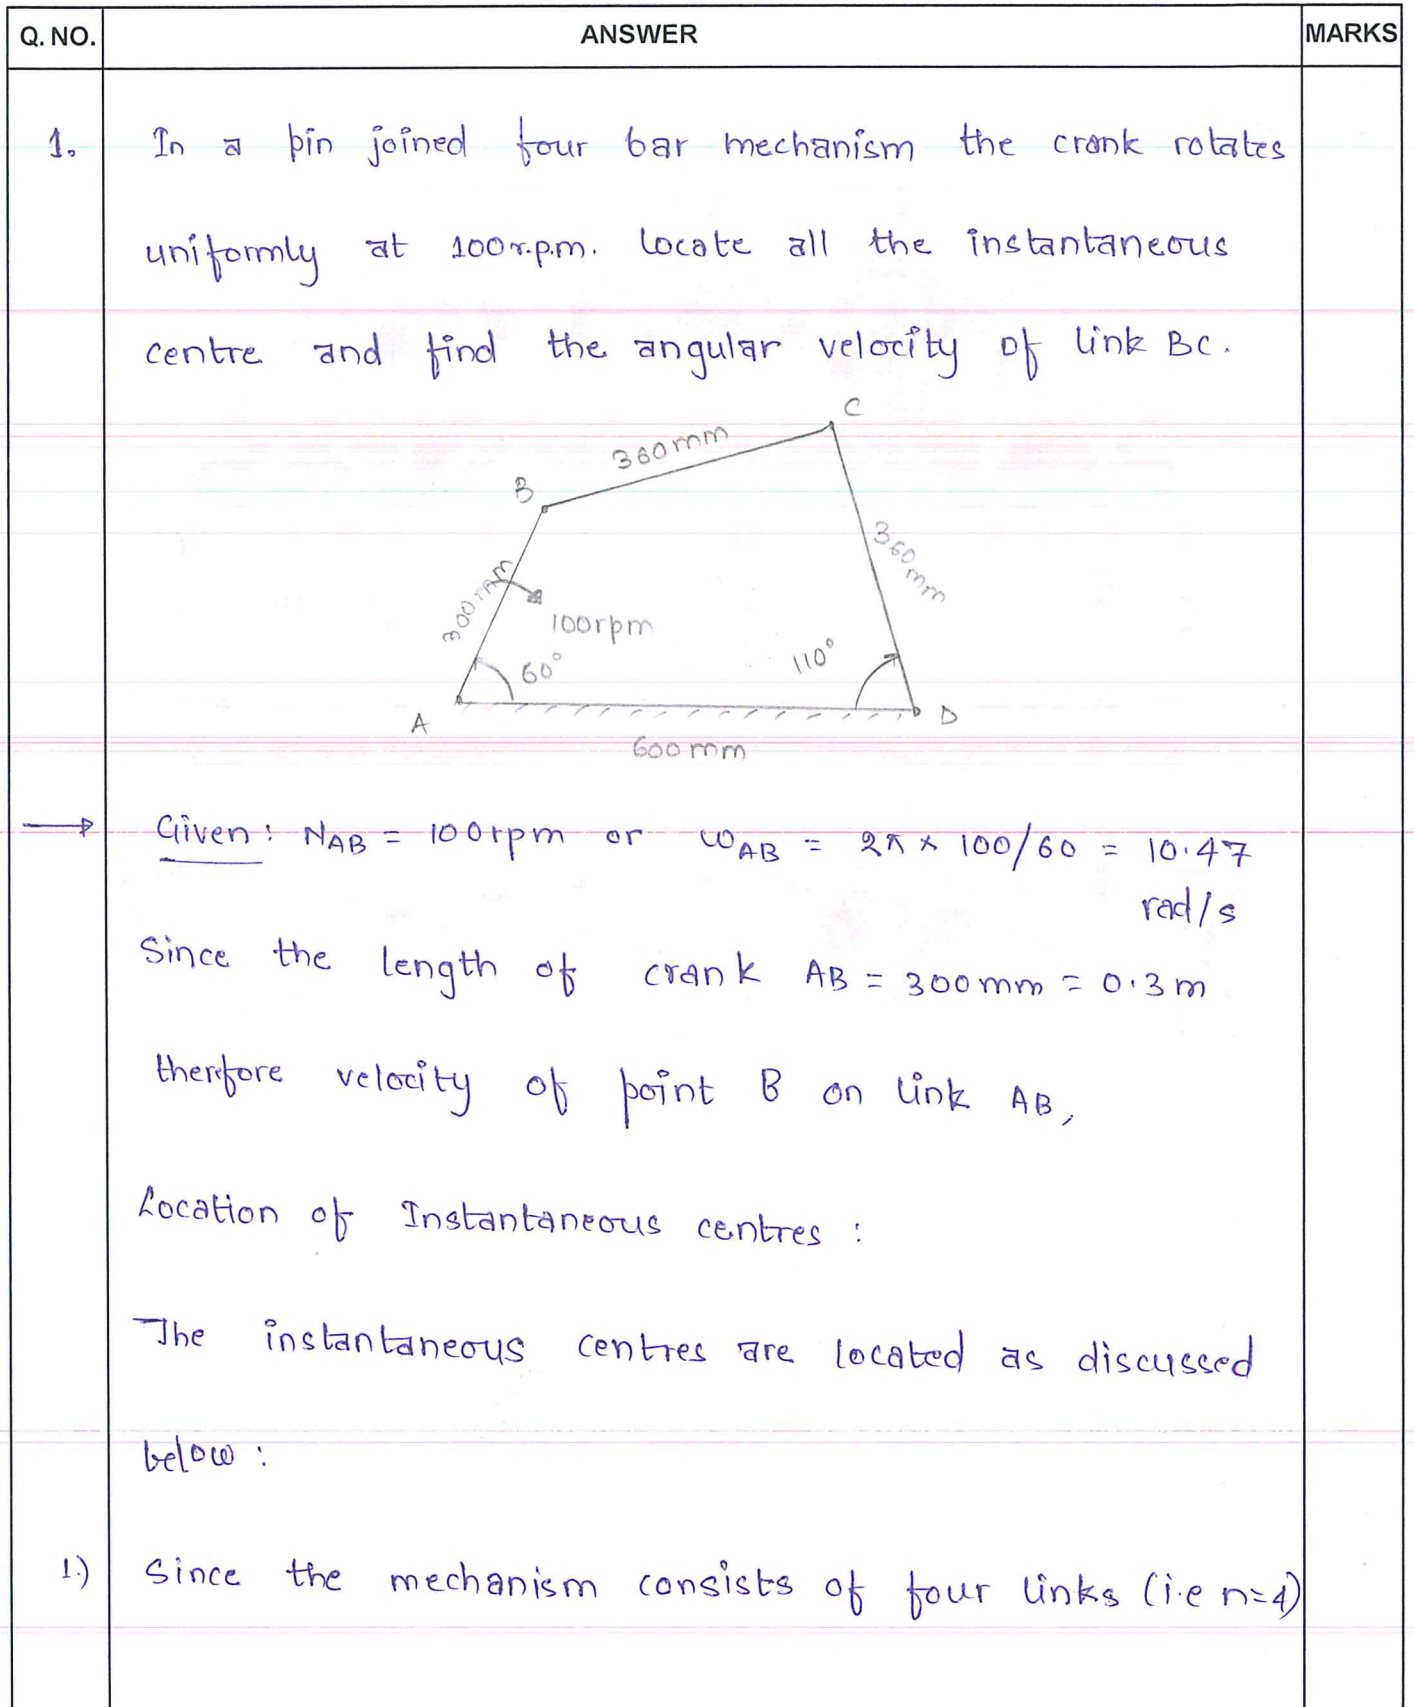 Q. NO. ANSWER MARKS
1. In a pin joined four bar mechanism the crank rotates
uniformly at 100r.p.m. Locate all the instantaneous
centre and find the angular velocity of link BC.
C
360mm
B
360mm
300mm
100rpm
60° 110°
A D
600mm
Given: NAB = 100rpm or ωAB = 2π × 100/60 = 10.47
rad/s
Since the length of crank AB = 300mm = 0.3m
therefore velocity of point B on link AB,
Location of Instantaneous centres :
The instantaneous centres are located as discussed
below :
1.) Since the mechanism consists of four links (i.e n=4)